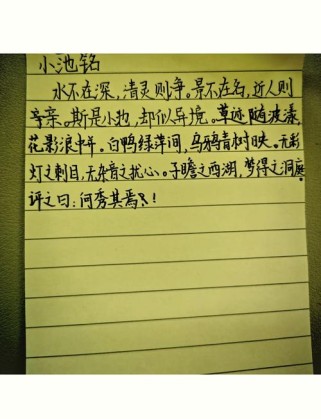 小池铭
水不在深，清灵则净。景不在名，近人则
亲。斯是小池，却似异境。草迹随波漾，
花影浪中开。白鸭绿萍间，乌鸦青树映。无彩
灯之刺目，无杂音之扰心。子瞻之西湖，梦得之洞庭。
评之曰：何秀其焉？！